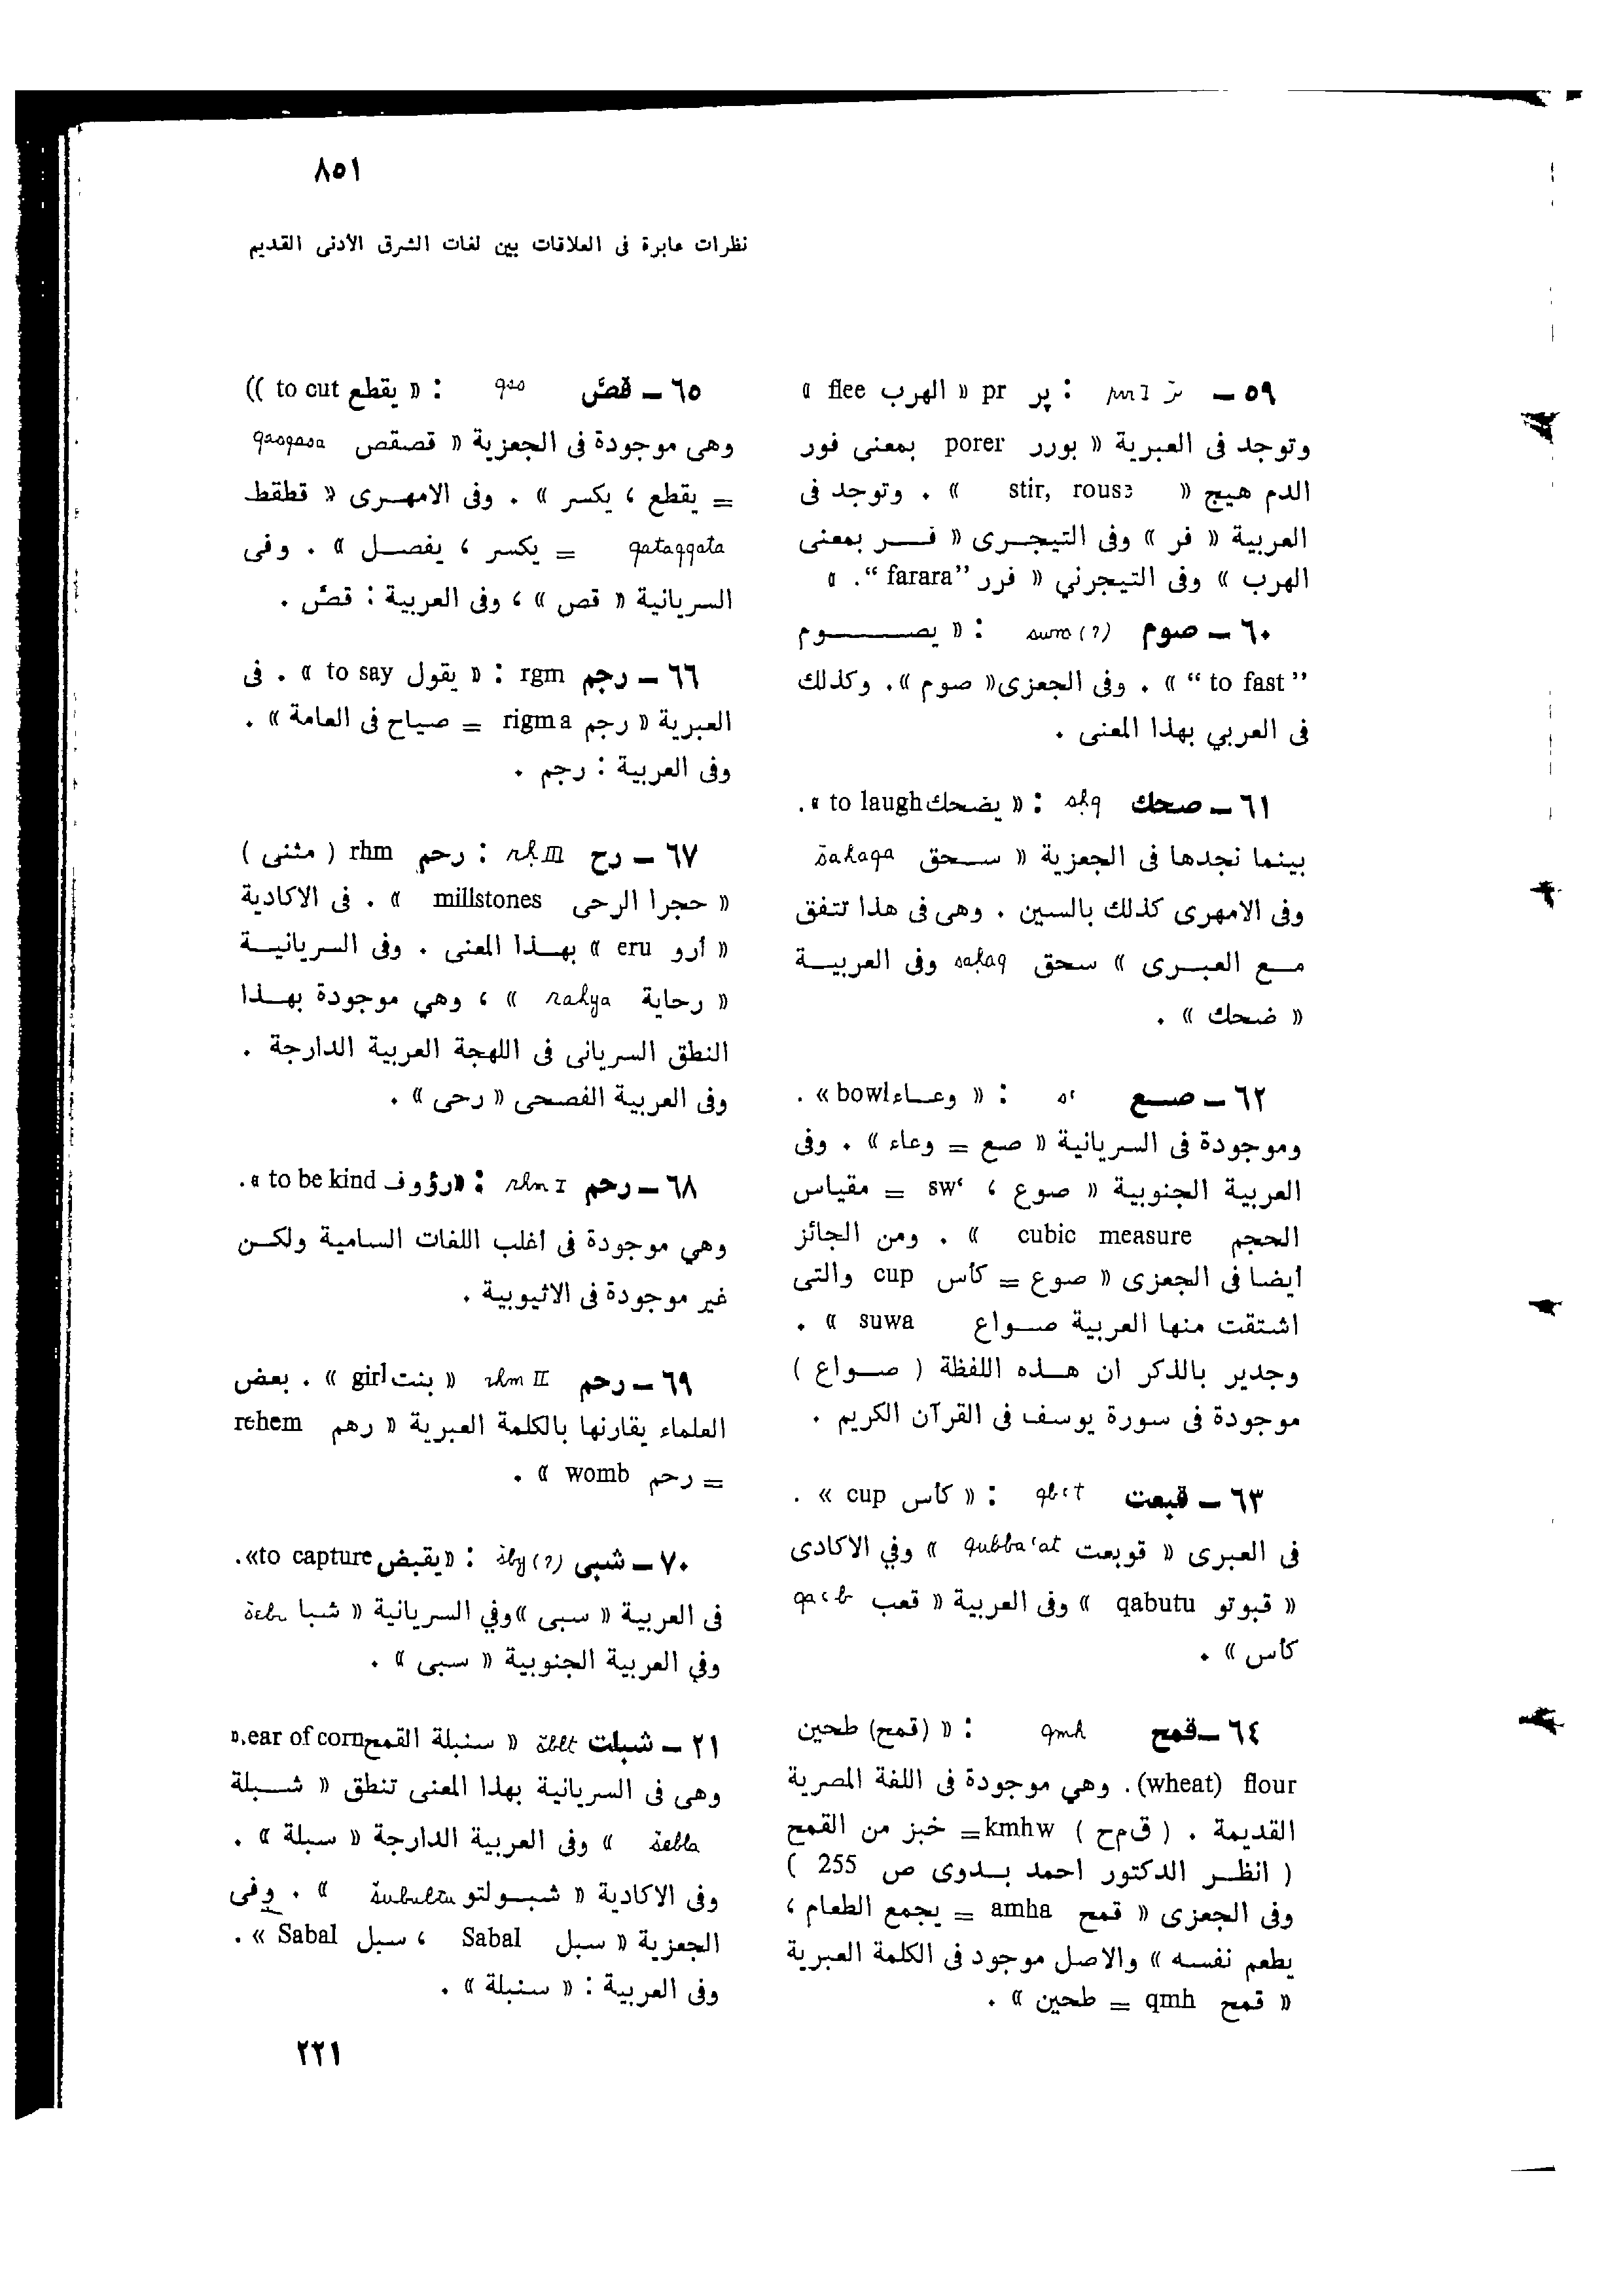 ٨٥١
نظرات عابرة فى العلاقات بين لغات الشرق الأدنى القديم
٥٩ — : پر pr « الهرب flee »
وتوجد فى العبرية « بورر porer بمعنى فور
الدم هيج « stir, rouse » ٠ وتوجد فى
العربية « فر » وفى التيجرى « فر بمعنى
الهرب » وفى التيجرني « فرر "farara". »
٦٠ — صوم ṣwm (?) : « يصوم
"to fast" » ٠ وفى الجعزى « صوم ». وكذلك
فى العربي بهذا المعنى ٠
٦١ — صحك ṣḥq : « يضحك to laugh ».
بينما نجدها فى الجعزية « سحق šaḥaqa
وفى الامهرى كذلك بالسين ٠ وهى فى هذا تتفق
مع العبرى » سحق saḥaq وفى العربية
« ضحك » ٠
٦٢ — صع ṣʿ : « وعاء bowl » .
وموجودة فى السريانية « صع = وعاء » ٠ وفى
العربية الجنوبية « صوع ، swʿ = مقياس
الحجم cubic measure » ٠ ومن الجائز
أيضا فى الجعزى « صوع = كأس cup والتى
اشتقت منها العربية صواع suwa » ٠
وجدير بالذكر ان هذه اللفظة ( صواع )
موجودة فى سورة يوسف فى القرآن الكريم ٠
٦٣ — قبعت qbʿt : « كأس cup » .
فى العبرى « قوبعت qubbaʿat » وفي الاكادى
« قبوتو qabutu » وفى العربية « قعب qaʿb
كأس » ٠
٦٤ — قمح qmḥ : « (قمح) طحين
(wheat) flour. وهي موجودة فى اللغة المصرية
القديمة ٠ ( ق م ح ) kmhw = خبز من القمح
( انظر الدكتور احمد بدوى ص 255 )
وفى الجعزى « قمح amha = يجمع الطعام ،
يطعم نفسه » والاصل موجود فى الكلمة العبرية
« قمح qmh = طحين » ٠
٦٥ — قصّ qṣṣ : « يقطع to cut ))
وهى موجودة فى الجعزية « قصقص qaṣqaṣa
= يقطع ، يكسر » ٠ وفى الامهرى « قطقط
qataqqata = يكسر ، يفصل » ٠ وفى
السريانية « قص » ، وفى العربية : قصّ ٠
٦٦ — رجم rgm : « يقول to say » ٠ فى
العبرية « رجم rigma = صياح فى العامة » ٠
وفى العربية : رجم ٠
٦٧ — رح rḥ III : رحم rhm ( مثنى )
« حجرا الرحى millstones » ٠ فى الاكادية
« أرو eru » بهذا المعنى ٠ وفى السريانية
« رحاية raḥya » ، وهي موجودة بهذا
النطق السريانى فى اللهجة العربية الدارجة ٠
وفى العربية الفصحى « رحى » ٠
٦٨ — رحم rḥm I : «رؤوف to be kind ».
وهي موجودة فى أغلب اللغات السامية ولكن
غير موجودة فى الاثيوبية ٠
٦٩ — رحم rḥm II « بنت girl » ٠ بعض
العلماء يقارنها بالكلمة العبرية « رهم rehem
= رحم womb » ٠
٧٠ — شبى šby (?) : «يقبض to capture».
فى العربية « سبى » وفي السريانية « شبا
وفي العربية الجنوبية « سبى » ٠
٢١ — شبلت šblt « سنبلة القمح ear of corn.»
وهى فى السريانية بهذا المعنى تنطق « شبلة
šebla » وفى العربية الدارجة « سبلة » ٠
وفى الاكادية « شبولتو šubultu » ٠ وفى
الجعزية « سبل Sabal ، سبل Sabal » ٠
وفى العربية : « سنبلة » ٠
٢٢١